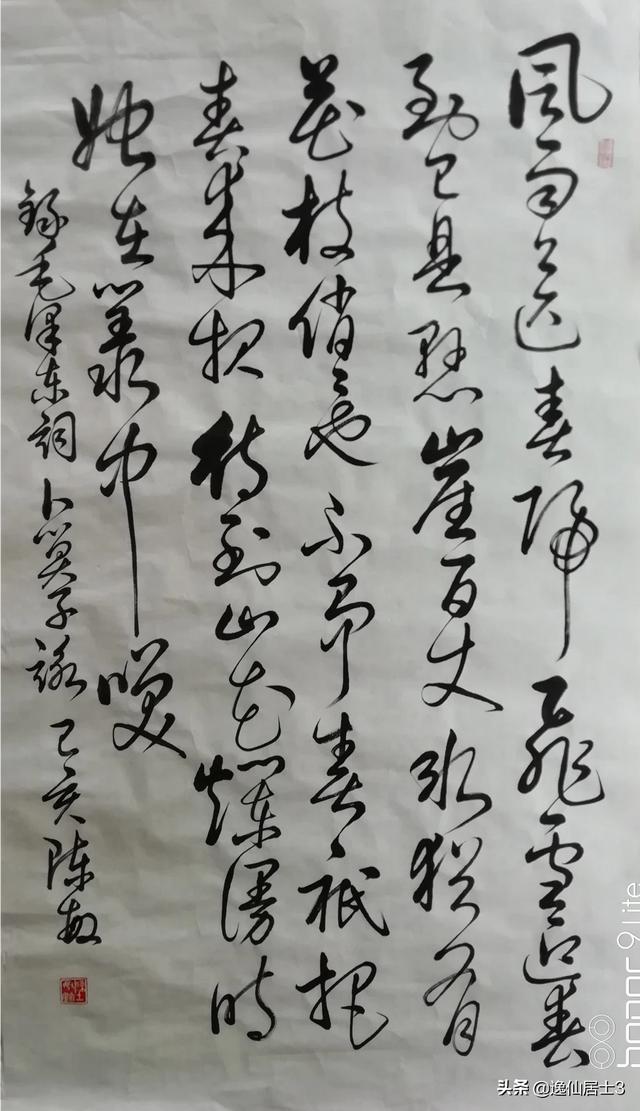 風雨送春歸飛雪迎春
到已是懸崖百丈冰猶有
花枝俏々也不爭春祇把
春来報待到山花爛漫時
她在叢中咲
錄毛澤東詞卜算子詠己亥陳敏
honor 9 Lite
头条 @逸仙居士3